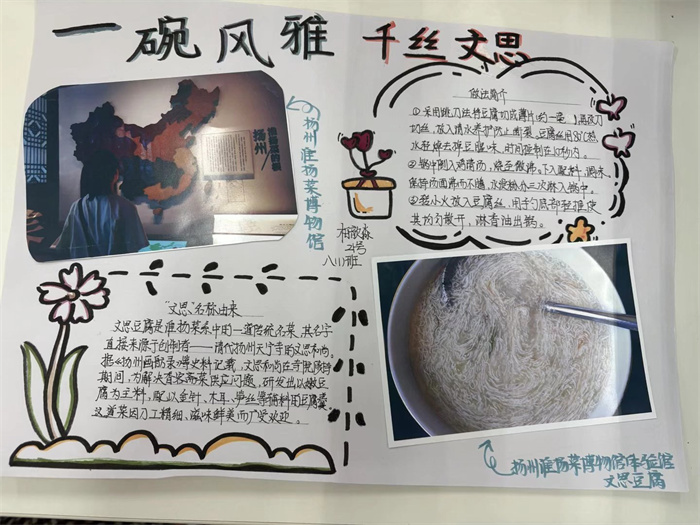 一碗风雅 千丝文思
做法简介
①采用跳刀法将豆腐切成薄片
切丝，放入清水养护防止断裂。豆腐丝用80℃热
水轻焯去碎豆腥味，时间控制在10秒内。
②锅中倒入鸡清汤，烧至微沸。下入配料，调味
保持汤面沸而不腾，水淀粉分三次淋入锅中。
③转小火放入豆腐丝，用手勺底部轻推使
其均匀散开，淋香油出锅。
扬州/
扬州淮扬菜博物馆
八(1)班
"文思"名称由来
文思豆腐是淮扬菜系中的一道传统名菜，其名字
直接来源于创制者——清代扬州天宁寺的文思和尚。
据《扬州画舫录》等史料记载，文思和尚在寺院
期间，为解决香客斋菜供应问题，研发出以嫩豆
腐为主料，配以金针、木耳、笋丝等辅料的豆腐羹
这道菜因刀工精细、滋味鲜美而广受欢迎。
扬州淮扬菜博物馆体验馆
文思豆腐